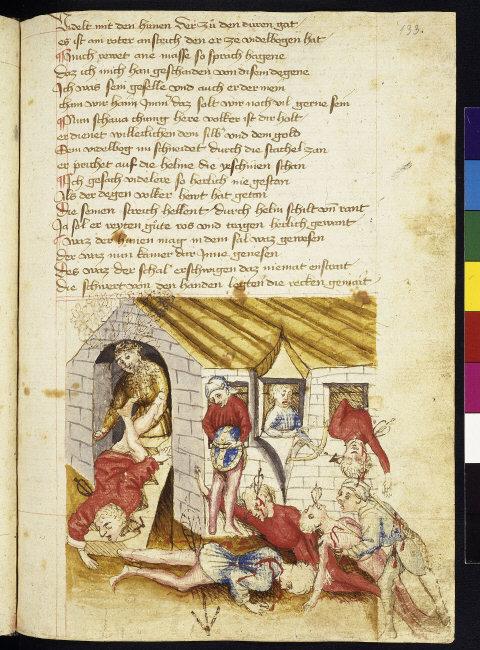 133.
Videlt mit den hunen der zü den duren gat
es ist am roter anstrich den er ze videlbogen hat
Mich rewet ane masse so sprach hagene
daz ich mich han geschaiden von disem degene
Ich was sein geselle und auch er der mein
wir haim daz solt wir noch vil gerne sein
Nun schaw chunig here volker ist dir holt
er dienet willeclichen dein silb und dein gold
Sein videlbog im schneidet durch die stachel zan
er prichet auf die helme die schan
Ich gesach videlere so herlich nie gestan
Als der degen volker hewt hat getan
Die seinen hellent durch helm schilt und rant
Ja sol er reyten gute ros und tragen herlich gewant
waz der hunen mag in dem sal waz gewesen
der waz nun kainer dar Inne genesen
Des waz der schal daz niemat enstrait
die schwert von den handen legten die recken gemait